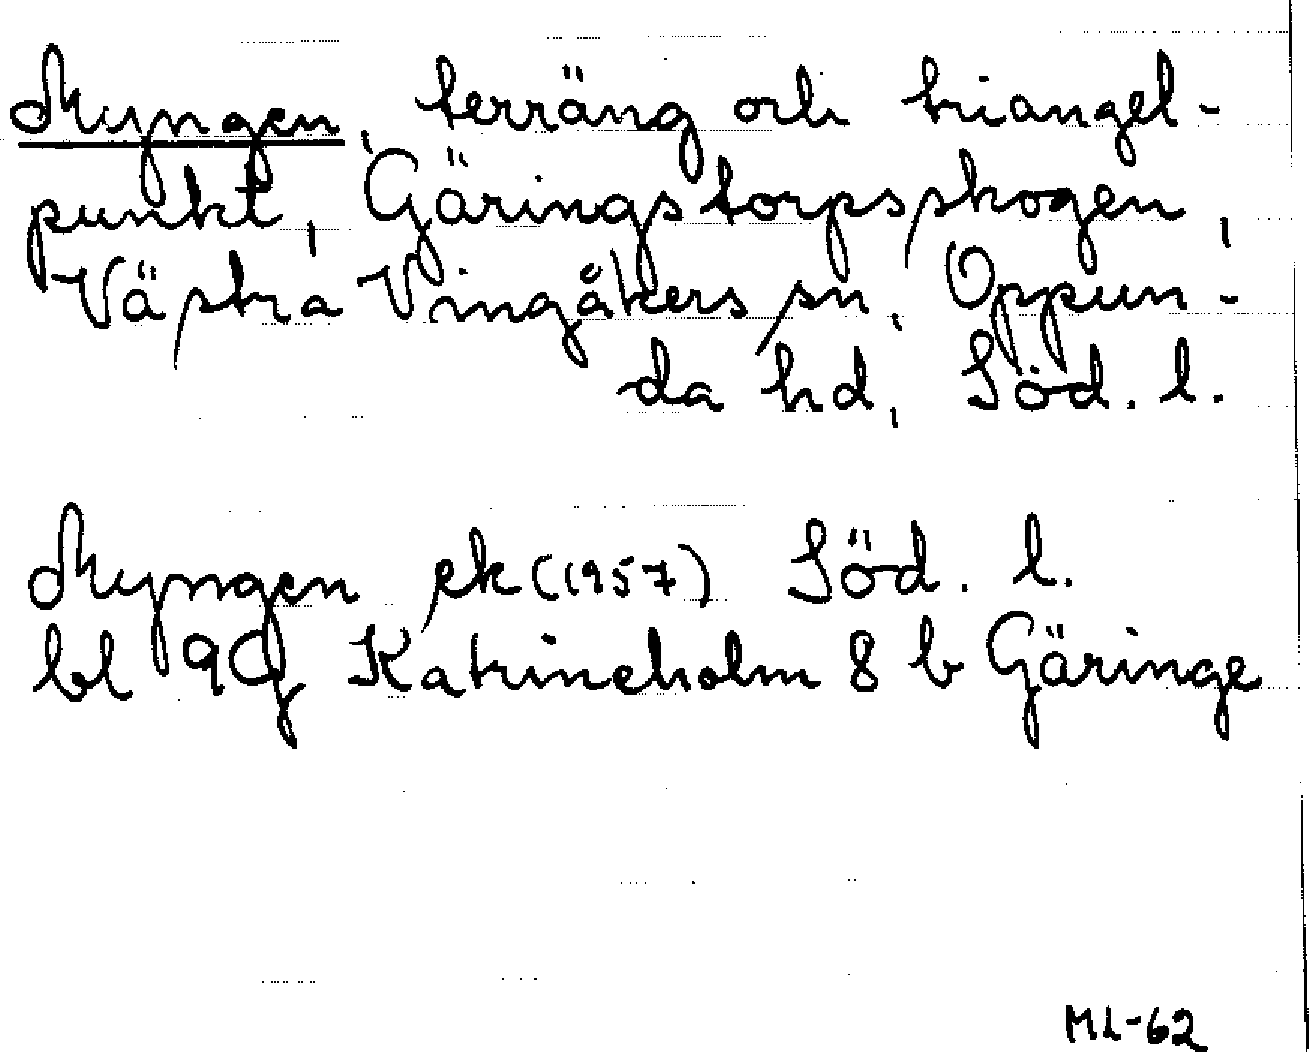 Myngen, terräng och triangel-
punkt, Gäringstorpsskogen,
Västra Vingåkers sn, Oppun-
da hd, Söd. l.
Myngen ek (1957) Söd. l.
bl 9G Katrineholm 8 b Gäringe
ML-62